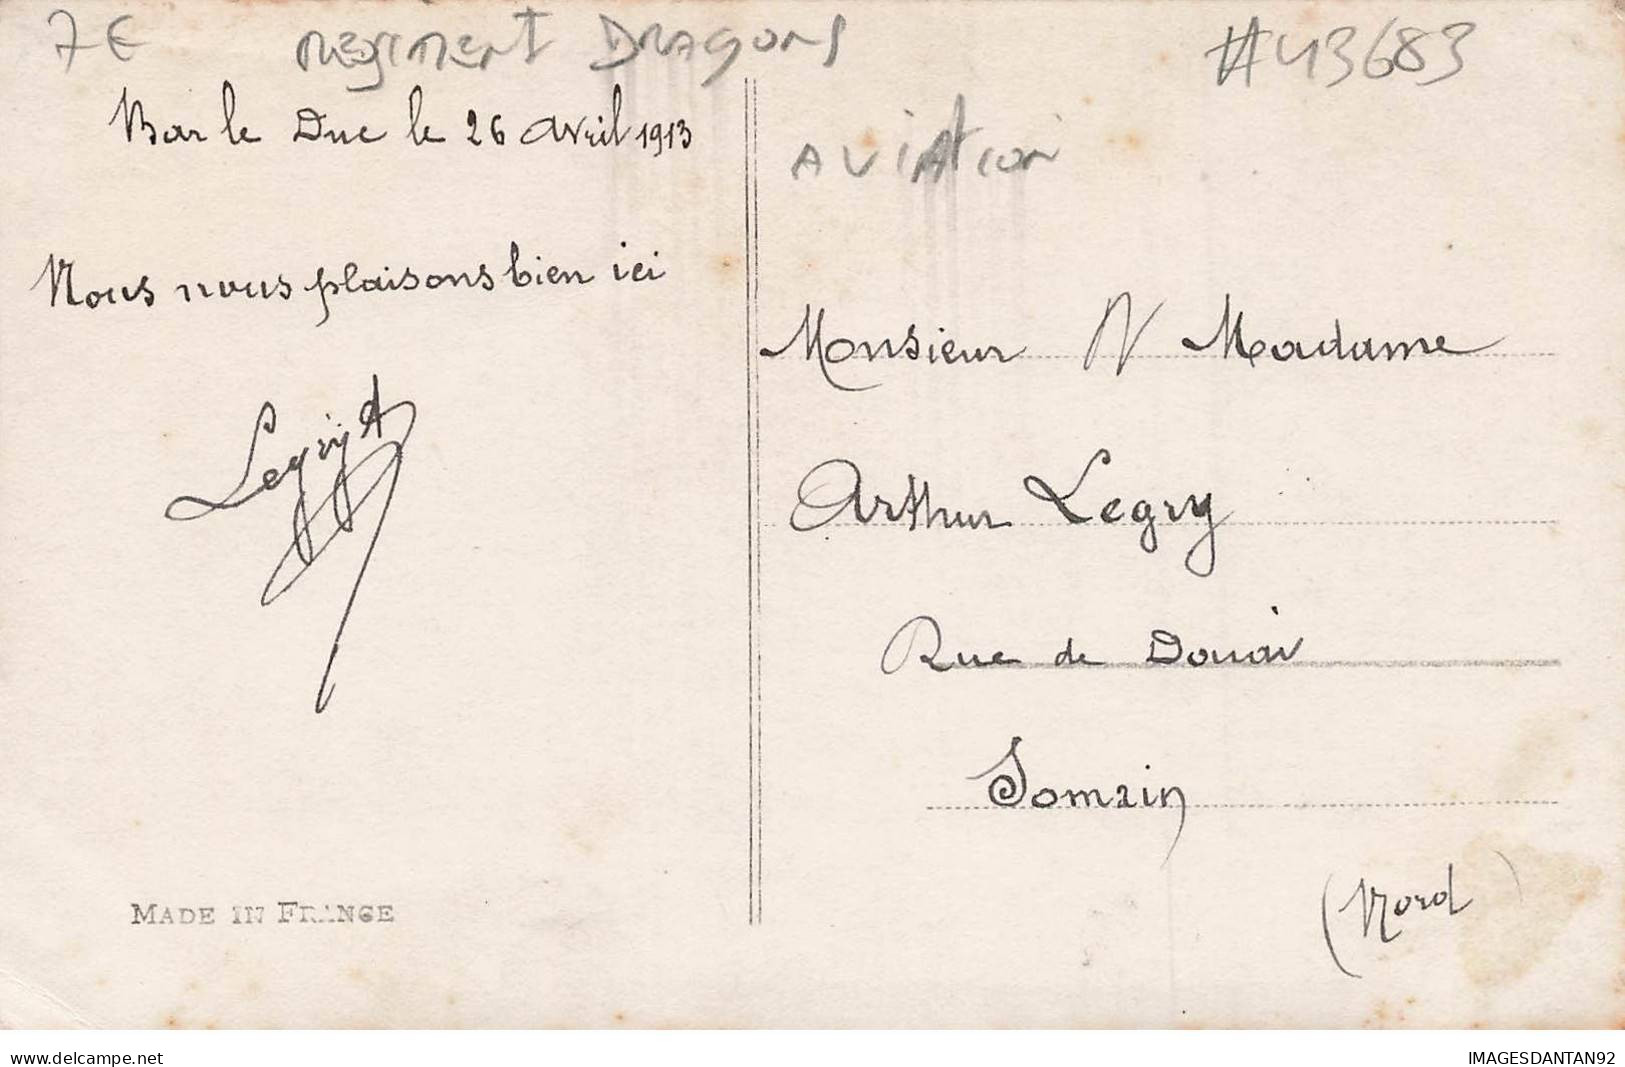 7€ REGIMENT DRAGONS #43683
AVIATION
Bar le Duc le 26 Avril 1913
Nous nous plaisons bien ici
Legry A
Monsieur N Madame
Arthur Legry
Rue de Douai
Somain
(Nord)
MADE IN FRANCE
www.delcampe.net
IMAGESDANTAN92